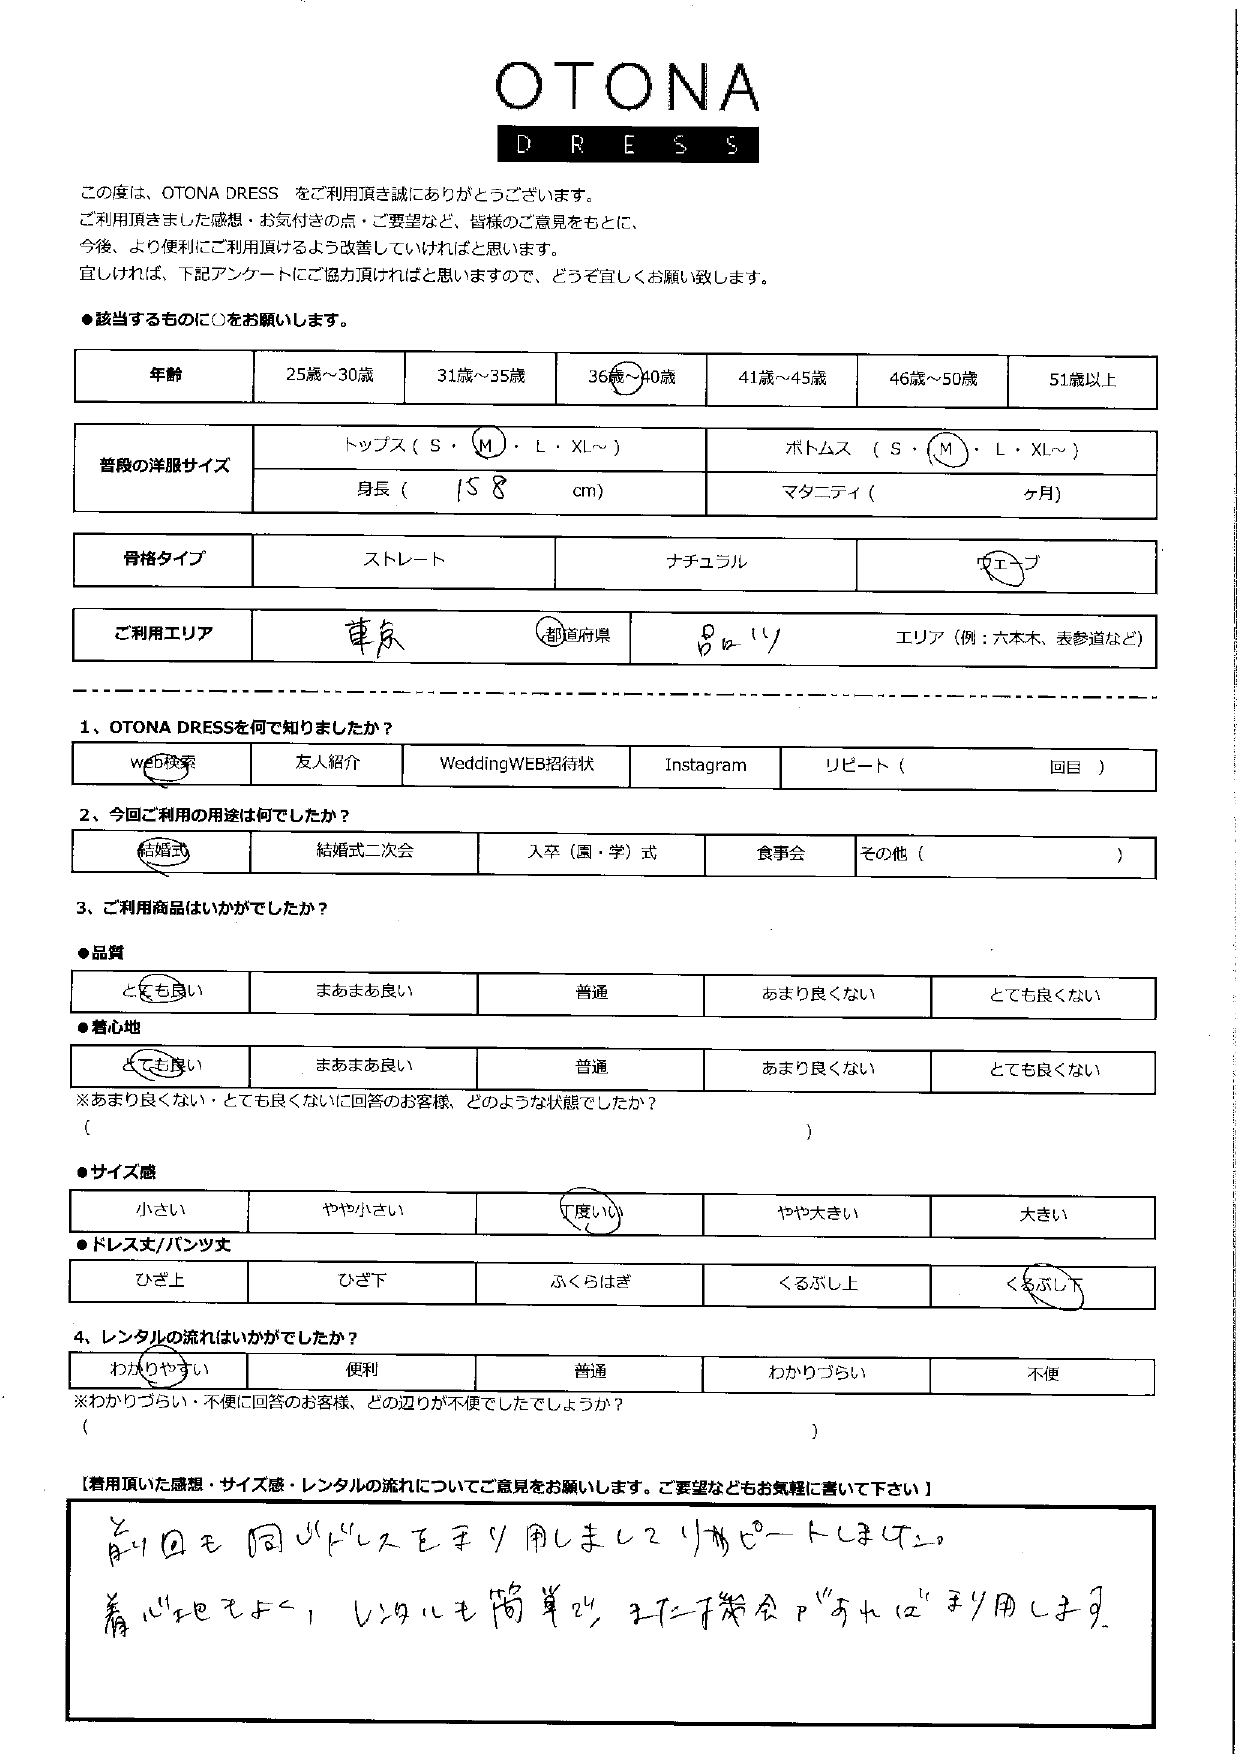 OTONA
DRESS
この度は、OTONA DRESS　をご利用頂き誠にありがとうございます。
ご利用頂きました感想・お気付きの点・ご要望など、皆様のご意見をもとに、
今後、より便利にご利用頂けるよう改善していければと思います。
宜しければ、下記アンケートにご協力頂ければと思いますので、どうぞ宜しくお願い致します。
●該当するものに○をお願いします。
年齢 25歳～30歳 31歳～35歳 36歳～40歳 41歳～45歳 46歳～50歳 51歳以上
普段の洋服サイズ トップス ( S ・ M ・ L ・ XL～ ) ボトムス ( S ・ M ・ L ・ XL～ )
身長 ( 158 cm) マタニティ ( ヶ月)
骨格タイプ ストレート ナチュラル ウェーブ
ご利用エリア 東京 都道府県 品川 エリア（例：六本木、表参道など）
1、OTONA DRESSを何で知りましたか？
web検索 友人紹介 WeddingWEB招待状 Instagram リピート ( 回目 )
2、今回ご利用の用途は何でしたか？
結婚式 結婚式二次会 入卒（園・学）式 食事会 その他 ( )
3、ご利用商品はいかがでしたか？
●品質
とても良い まあまあ良い 普通 あまり良くない とても良くない
●着心地
とても良い まあまあ良い 普通 あまり良くない とても良くない
※あまり良くない・とても良くないに回答のお客様、どのような状態でしたか？
( )
●サイズ感
小さい やや小さい 丁度いい やや大きい 大きい
●ドレス丈/パンツ丈
ひざ上 ひざ下 ふくらはぎ くるぶし上 くるぶし下
4、レンタルの流れはいかがでしたか？
わかりやすい 便利 普通 わかりづらい 不便
※わかりづらい・不便に回答のお客様、どの辺りが不便でしたでしょうか？
( )
【着用頂いた感想・サイズ感・レンタルの流れについてご意見をお願いします。ご要望などもお気軽に書いて下さい】
前回も同じドレスを利用しましてリピートしました。
着心地もよく、レンタルも簡単で、また機会があれば利用します